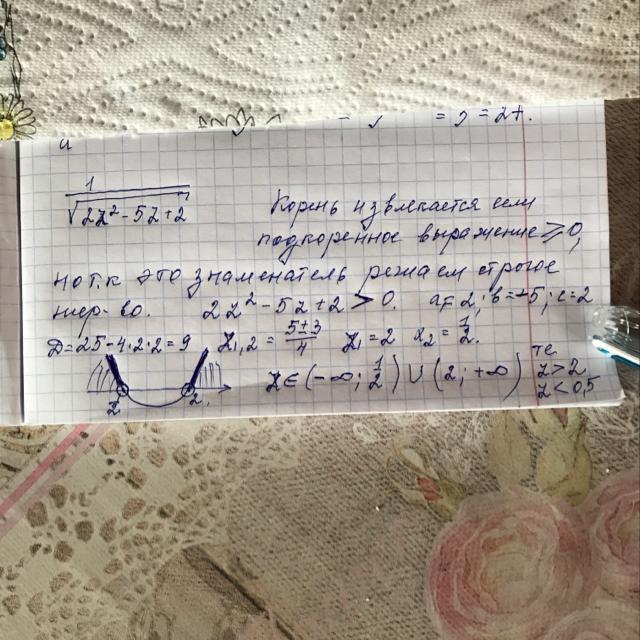 = 5 = 2t.
и
1
√2z² - 5z + 2
Корень извлекается если
подкоренное выражение ≥ 0,
но т.к это знаменатель решаем строгое
нер-во. 2z² - 5z + 2 > 0. a = 2; b = -5; c = 2
D = 25 - 4·2·2 = 9 z₁,₂ = (5±3)/4 z₁ = 2 z₂ = 1/2.
z ∈ (-∞; 1/2) ∪ (2; +∞) те
z > 2
z < 0,5
2 2,